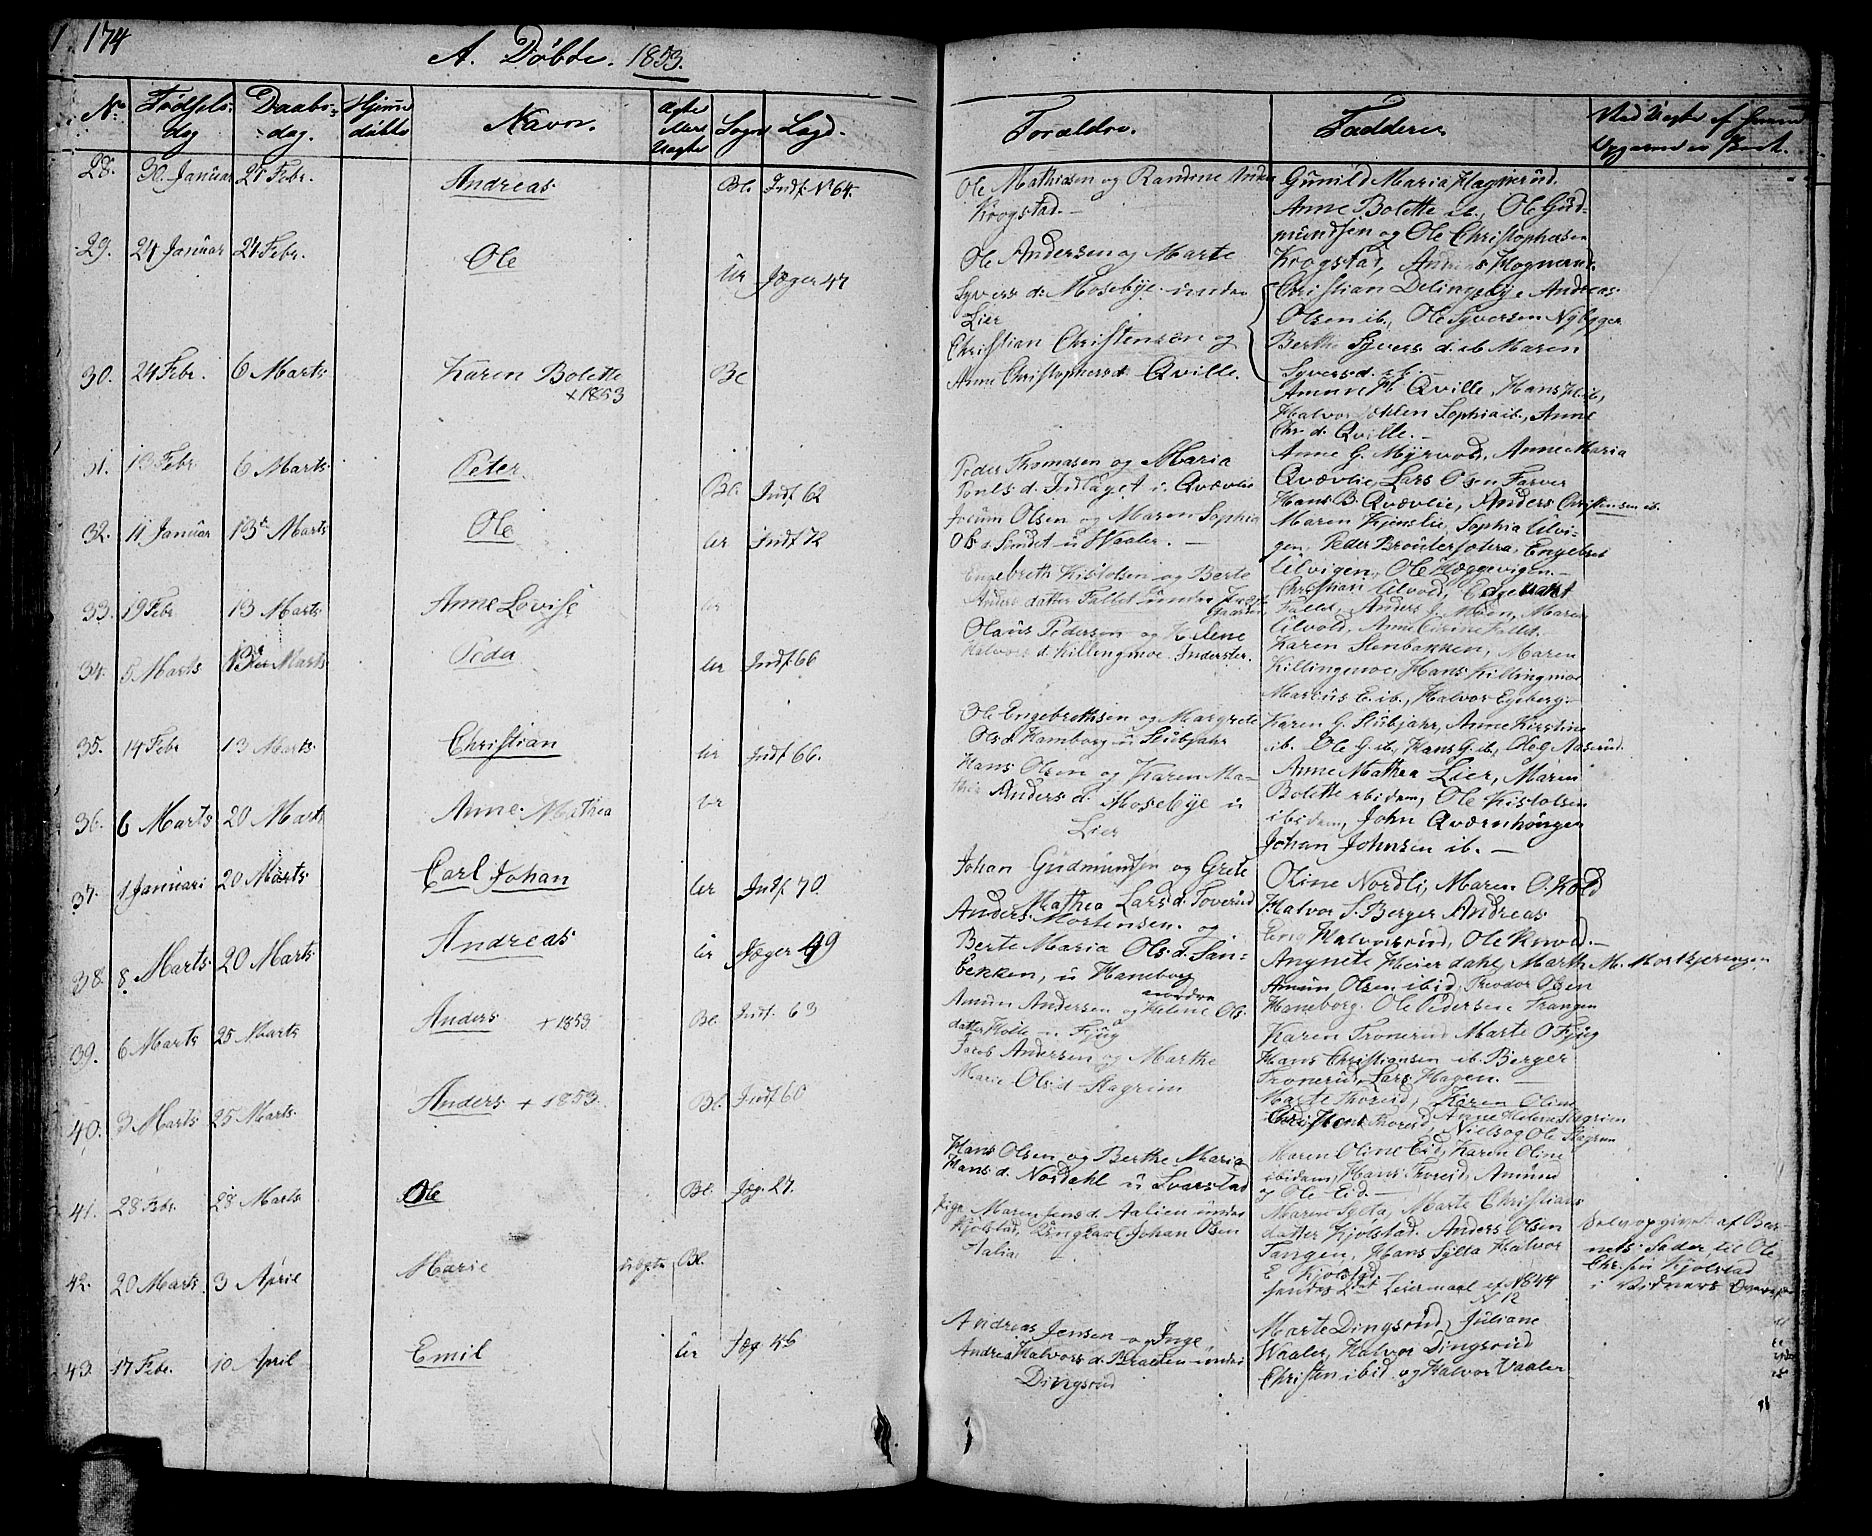 174
A. Döbte. 1853.
No Fødsels- dag Daabs- dag. Hjemme døbte Navn. Ægte Uægte Sogn Lægd. Forældre. Faddere
28. 30. Januar 27 Febr. Andreas Bl. Indf. No 64.
Ole Mathiasen og Randine
Krogstad.
Gunild Maria Hagnerud.
Anne Bolette ib., Ole Gud-
mundsen og Ole Christophersen
Krogstad, Andreas Hognerud.
29. 24 Januar 27 Febr. Ole Ur Jæger 47
Ole Andersen og Marte
Syvers d. Mosebye under
Lier
Christian Delingsbye Andreas
Olsen ib., Ole Syversen Nybyger
Berthe Syvers d. ib Maren
Syversd. ib.
30. 24 Febr. 6 Marts Karen Bolette +1853 Bl
Christian Christensen og
Anne Christophersd. Qville.
Amne H. Qville, Hans H. ib,
Halvor Sophia ib., Anne
Chr. d. Qville.
31. 13 Febr. 6 Marts Peter Bl. Indf. 62
Peder Thomasen og Maria
Pouls d. Indlaget i Qvævlie
Anne G. Myrvold, Anne Maria
Qvævlie, Lars Olsen Farver
Hans B. Qvævlie, Anders Christensen ib.
32. 11 Januar 13de Marts Ole Ur Indf 72
Jocum Olsen og Maren Sophia
Ols d. Sundet u Waaler.
Maren Kjønslie, Sophia Ulvi-
gen, Peder Engebret
Ulvigen, Ole Hæggevigen.
33. 19 Febr 13 Marts Anne Lovise Ur
Engebreth Kistolsen og Berte
Anders datter Fallet under
Christian Ulvold, Engebrekt
Fallet, Anders G. Moen, Maren
Ulvold, Anne Cirine Fallet.
34. 5 Marts 13de Marts Peder Ur Indf. 66
Olaus Pedersen og Helene
Halvors d. Killingmoe Inderster.
Karen Stenbakken, Maren
Killingmoe, Hans Killingmoe
Marius E. ib., Halvor Egeberg.
35. 14 Febr 13 Marts. Christian Ur Indf 66.
Ole Engebrethsen og Margrete
Ols d. Hamborg u Stubjahr
Karen G. Stubjahr, Anne Kirstine
ib. Ole G. ib, Hans G. ib, Ole G Aaserud.
36. 6 Marts 20 Marts Anne Mathea Ur
Hans Olsen og Karen Ma-
thie Anders d. Mosebye u
Lier
Anne Mathea Lier, Maren
Bolette ibidem, Ole Kistolsen
ibidem, John Qværnhöngen
Johan Johnsen ib.
37. 1 Januari 20 Marts Carl Johan Ur Indf 70.
Johan Gudmundsen og Grete
Mathea Lars d. Toverud
Oline Nordli, Maren O. Kold
Halvor S. Berger Andreas
Halvorsrud, Ole
38. 8 Marts. 20 Marts. Andreas Ur Jæger 49
Anders Mortensen og
Berte Maria Ols d. San-
bekken, u Haneborg
nordre
Angnete Heierdahl, Marth M. Morkjerengen
Amun Olsen ibid, Theodor Olsen
Haneborg. Ole Pedersen Trangen
39. 6 Marts 25 Marts Anders +1853 Bl. Indf. 63
Amun Andersen og Helene Ols
datter Holle u Fjug
Karen Tronerud Marte O Fjug
Hans Christiansen ib. Berger
Tronerud, Lars Hagen.
40. 3 Marts 25 Marts. Anders +1853 Bl. Indf 60
Jacob Andersen og Marthe
Marie Ols d Hagrim
Marte Thoreid, Karen Oline
Christense Thoreid, Anne Helene Hagrim
Niels og Ole Hagrim
41. 28 Febr. 28 Marts Ole Bl. Jæg. 27.
Hans Olsen og Berthe Maria
Hans d. Nordahl u Svarstad
Maren Oline Eid, Karen Oline
ibidem, Hans Thoreid, Amund
og Ole Eid.
42. 20 Marts. 3 April Marie Uægte Bl.
Pige Maren Jens d. Aalien under
Kjölstad, Ungkarl Johan Olsen
Aalia.
Maren Sylta, Marte Christians
datter Kjölstad. Anders Olsen
Tangen, Hans Sylta Halvor
E Kjölstad
2det Leiermaal af No 44
N 12
Selv opgivet af Bar-
nets Fader til Ole
Chr.sen Kjölstad
i Vidners
43. 17 Febr. 10 April Emil Ur Jæg 46
Andreas Jensen og Inge
Andrea Halvors d. Braaten under
Dingsrud
Marte Dingsrud, Juliane
Waaler, Halvor Dingsrud
Christen ibid. og Halvor Vaaler